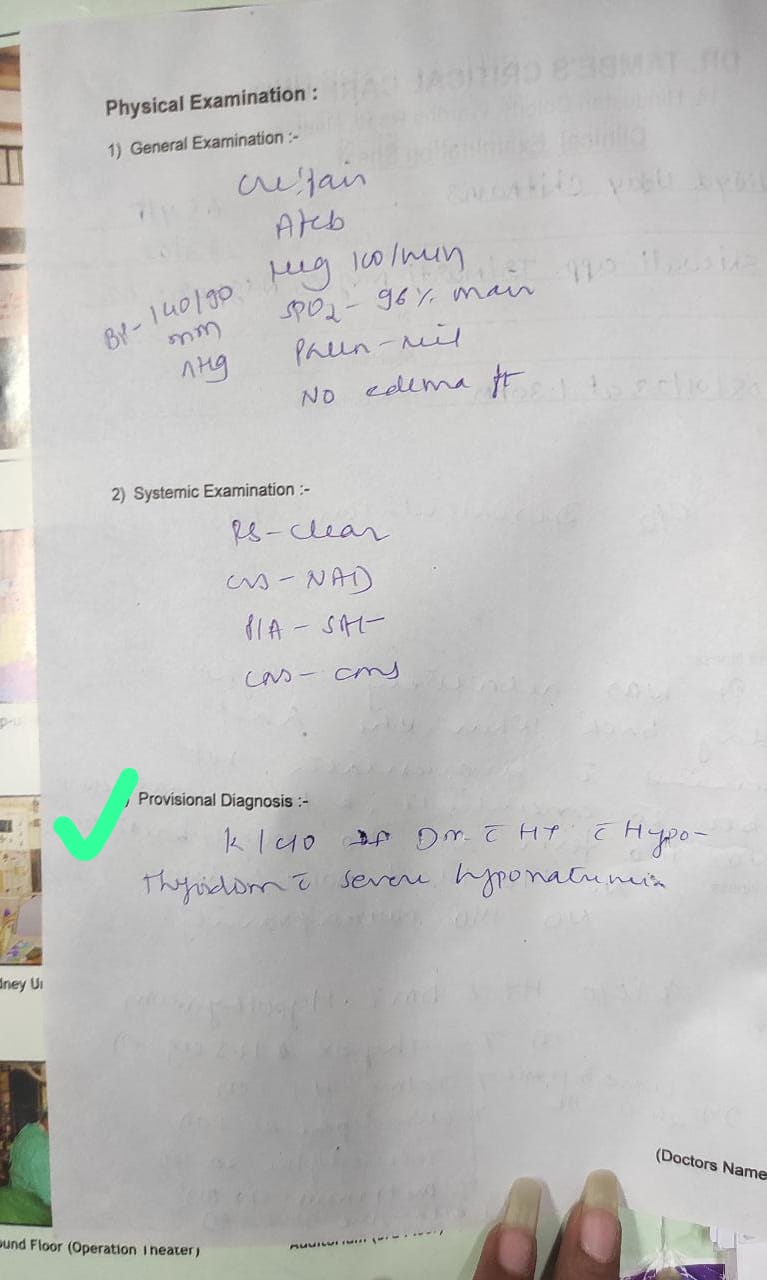 Physical Examination :
1) General Examination :-
GC: fair
Afeb
100/min
BP- 140/90
mm
Hg
SPO2 - 96%
Pallor - nil
NO edema
2) Systemic Examination :-
RS - clear
CVS - NAD
P/A - Soft
CNS - cons
Provisional Diagnosis :-
K/C/O DM c̄ HT c̄ Hypo-
thyroidism c̄ severe hyponatremia
(Doctors Name
dney Un
ound Floor (Operation Theater)